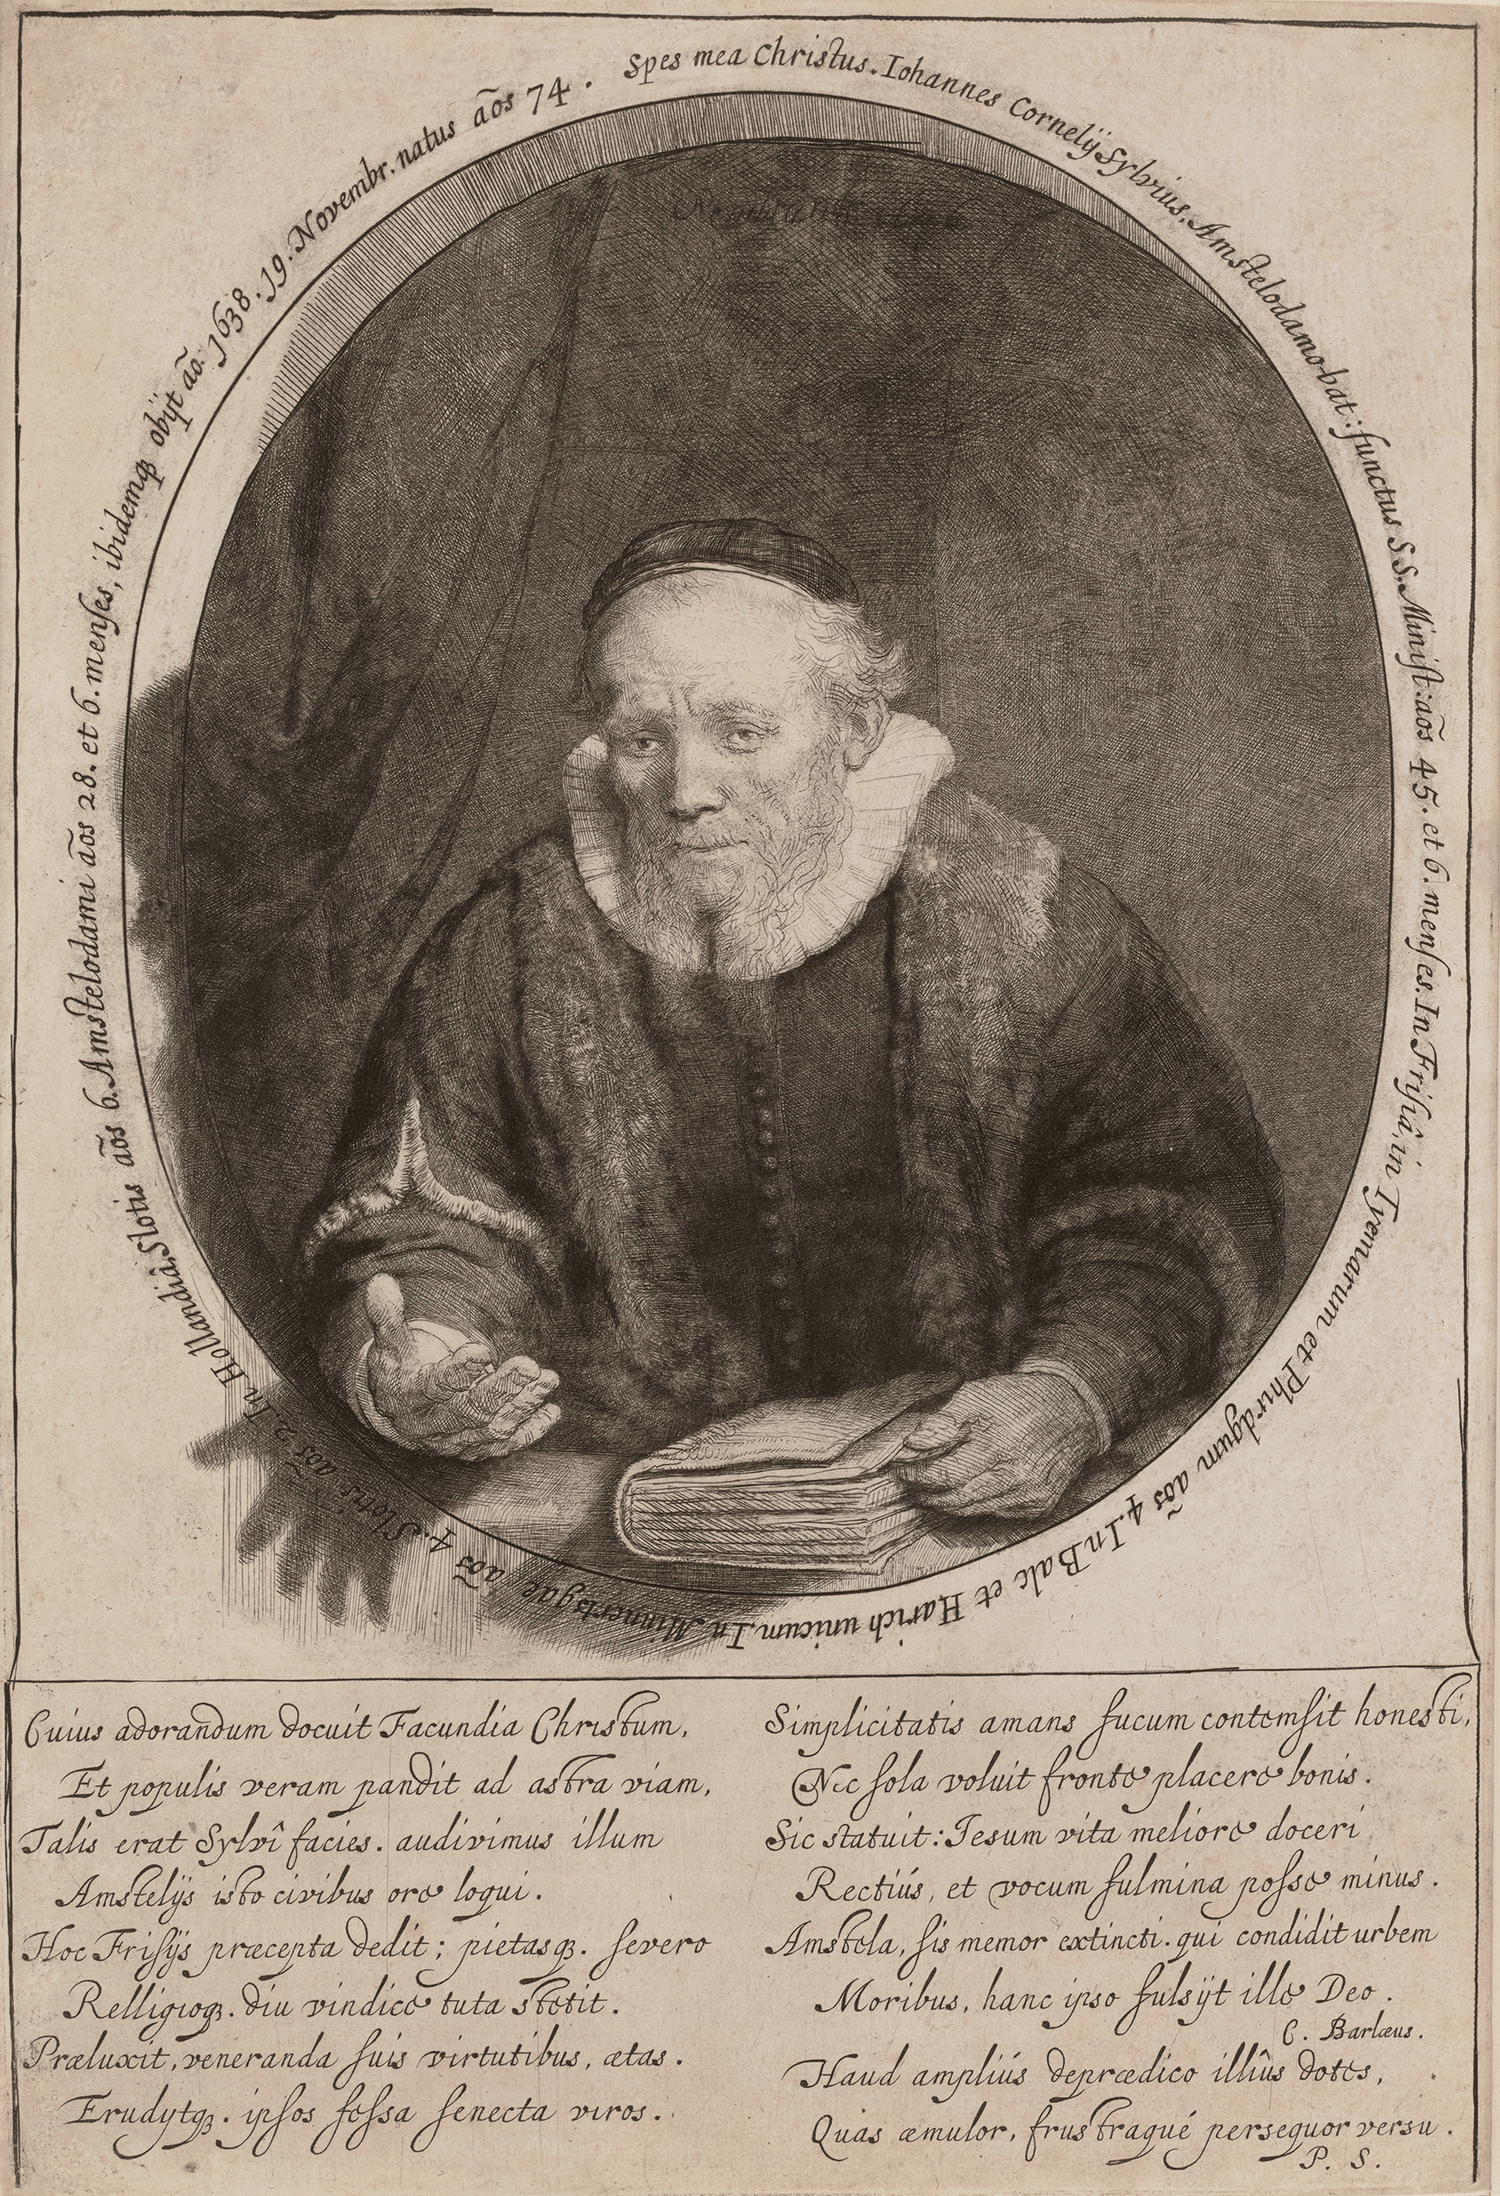 Spes mea Christus. Iohannes Cornelÿ Sylvius, Amstelodamo-bat: functus S.S. Minist: aōs 45. et 6. menses. In Frisiâ, in Tyemarum et Phirdgum aōs 4. In Balc et Harich unicum. In Minnertsgae aōs 4. Slotis aōs 2. In Hollandiâ, Slotis aōs 6. Amstelodami aōs 28. et 6. menses, ibidemq₃ obÿt aō. 1638. 19. Novembr. natus aōs 74.
Cuius adorandum docuit Facundia Christum,
Et populis veram pandit ad astra viam,
Talis erat Sylvî facies. audivimus illum
Amstelÿs isto civibus ore loqui.
Hoc Frisÿs præcepta dedit; pietasq₃. severo
Relligioq₃. diu vindice tuta stetit.
Præluxit, veneranda suis virtutibus, ætas.
Erudytq₃. ipsos fessa senecta viros.
Simplicitatis amans fucum contemsit honesti,
Nec sola voluit fronte placere bonis.
Sic statuit: Iesum vita meliore doceri
Rectiús, et vocum fulmina posse minus.
Amstela, sis memor extincti. qui condidit urbem
Moribus, hanc ipso fulsÿt ille Deo.
C. Barlæus.
Haud ampliús deprædico illîus dotes,
Quas æmulor, frustraqué persequor versu.
P. S.